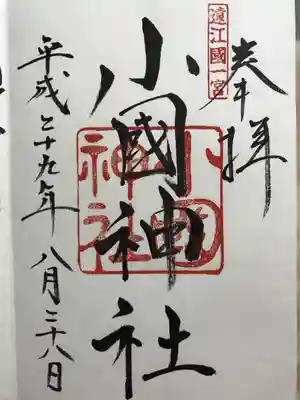 奉拝
遠江國一宮
小國神社
小國神社
平成二十九年八月二十八日